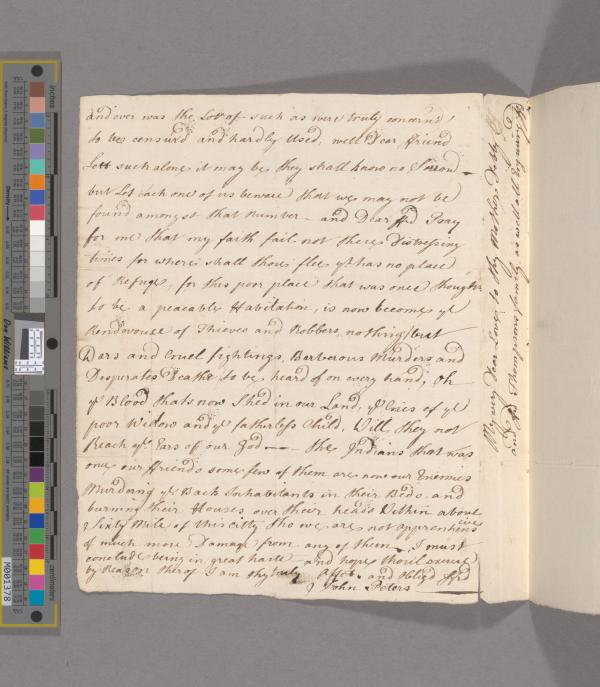 and over was the Lott of such as were truly concernd
to be censurd and hardly Used, well Dear friend
Lett such alone it may be they shall know no Sorrow
but Let each one of us beware that we may not be
found amongst that number - and Dear ffrd Pray
for me that my faith fail not these Distressing
times for where shall those flee yt has no place
of Refuge, for this poor place that was once thought
to be a peacable Habitation, is now become ye
Rendevouse of Thieves and Robbers, nothing but
Wars and Cruel fightings, Berberous Murders and
Desperate Deaths to be heard of on every hand, oh
ye Blood thats now Shed in our Land, ye Cries of ye
poor Widow and ye fatherless Child, Will they not
Reach ye Ears of our God — the Indians that was
once our ffriends some few of them are now our Enemies
Murdring ye Back Inhabitants in their Beds and
burning their Houses over their heads Within about
Sixty Mile of this citty, tho we are not apprehensive
of much more Damage from any of them, I must
conclude being in great haste and hope thoul excuse
by Reason thereof I am thy truly Afft. and Oblig'd ffrd
John Peters
My very Dear Love to thy Mother, Debby
and ffrd Thompsons family as well all enquiring ffrds
inches
centimeters
Density
Don Williams
M001378